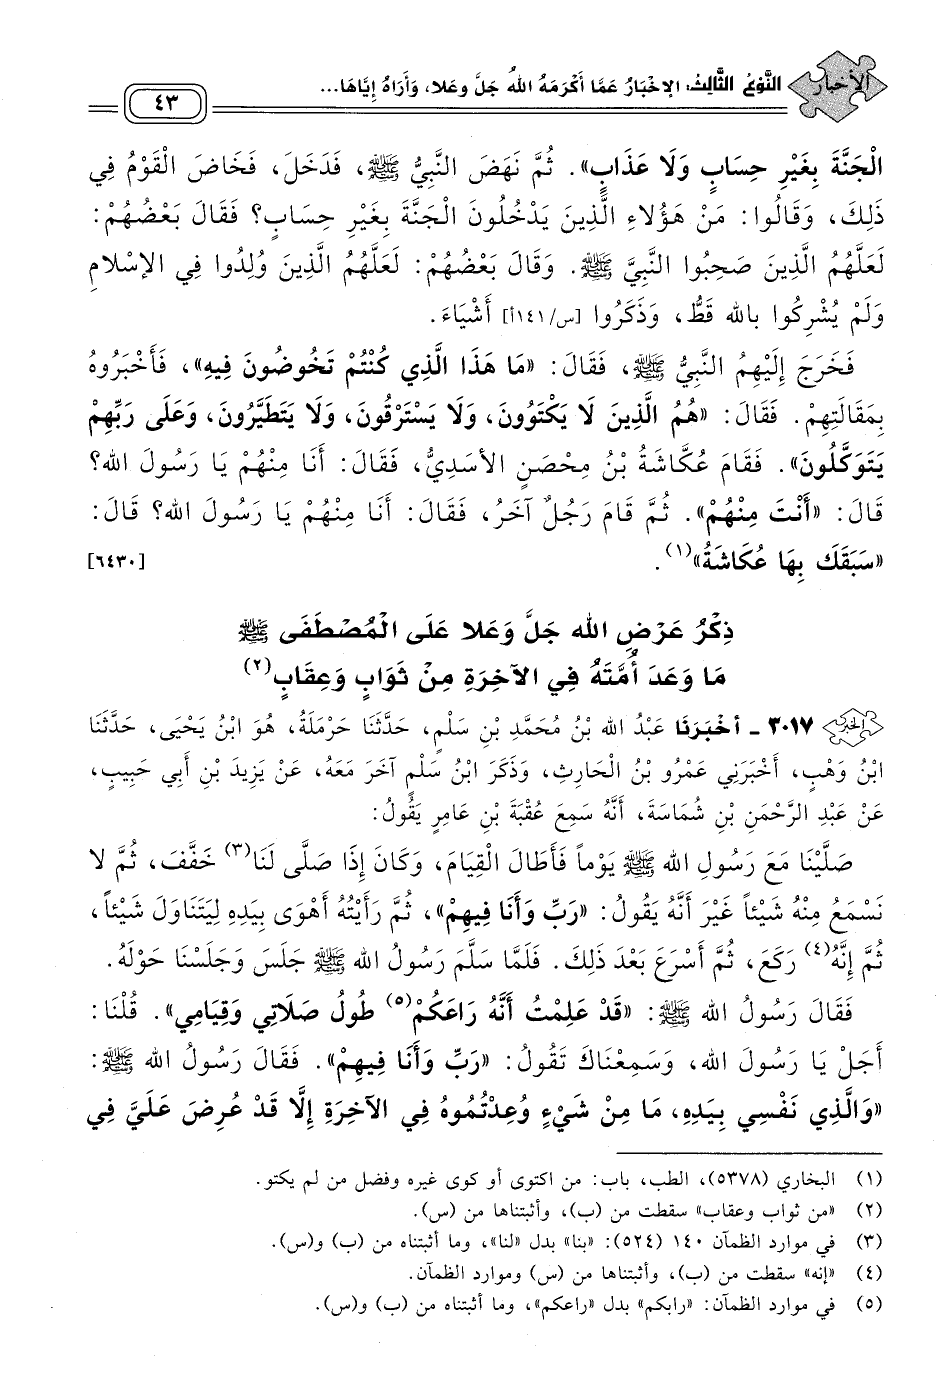 الأخبار
النَّوْعُ الثَّالِثُ: الإخْبَارُ عَمَّا أَكْرَمَهُ اللهُ جَلَّ وعَلا، وَأَرَاهُ إِيَّاهَا...
٤٣
الْجَنَّةَ بِغَيْرِ حِسَابٍ وَلَا عَذَابٍ». ثُمَّ نَهَضَ النَّبِيُّ ﷺ، فَدَخَلَ، فَخَاضَ الْقَوْمُ فِي
ذَلِكَ، وَقَالُوا: مَنْ هَؤُلَاءِ الَّذِينَ يَدْخُلُونَ الْجَنَّةَ بِغَيْرِ حِسَابٍ؟ فَقَالَ بَعْضُهُمْ:
لَعَلَّهُمُ الَّذِينَ صَحِبُوا النَّبِيَّ ﷺ. وَقَالَ بَعْضُهُمْ: لَعَلَّهُمُ الَّذِينَ وُلِدُوا فِي الإِسْلَامِ
وَلَمْ يُشْرِكُوا بالله قَطُّ، وَذَكَرُوا [س/١٤١أ] أَشْيَاءَ.
فَخَرَجَ إِلَيْهِمُ النَّبِيُّ ﷺ، فَقَالَ: «مَا هَذَا الَّذِي كُنْتُمْ تَخُوضُونَ فِيهِ»، فَأَخْبَرُوهُ
بِمَقَالَتِهِمْ. فَقَالَ: «هُمُ الَّذِينَ لَا يَكْتَوُونَ، وَلَا يَسْتَرْقُونَ، وَلَا يَتَطَيَّرُونَ، وَعَلَى رَبِّهِمْ
يَتَوَكَّلُونَ». فَقَامَ عُكَّاشَةُ بْنُ مِحْصَنٍ الأَسَدِيُّ، فَقَالَ: أَنَا مِنْهُمْ يَا رَسُولَ الله؟
قَالَ: «أَنْتَ مِنْهُمْ». ثُمَّ قَامَ رَجُلٌ آخَرُ، فَقَالَ: أَنَا مِنْهُمْ يَا رَسُولَ الله؟ قَالَ:
«سَبَقَكَ بِهَا عُكَاشَةُ»(١). [٦٤٣٠]
ذِكْرُ عَرْضِ الله جَلَّ وَعَلا عَلَى الْمُصْطَفَى ﷺ
مَا وَعَدَ أُمَّتَهُ فِي الآخِرَةِ مِنْ ثَوَابٍ وَعِقَابٍ(٢)
الخبر ٣٠١٧ - أَخْبَرَنَا عَبْدُ الله بْنُ مُحَمَّدِ بْنِ سَلْمٍ، حَدَّثَنَا حَرْمَلَةُ، هُوَ ابْنُ يَحْيَى، حَدَّثَنَا
ابْنُ وَهْبٍ، أَخْبَرَنِي عَمْرُو بْنُ الْحَارِثِ، وَذَكَرَ ابْنُ سَلْمٍ آخَرَ مَعَهُ، عَنْ يَزِيدَ بْنِ أَبِي حَبِيبٍ،
عَنْ عَبْدِ الرَّحْمَنِ بْنِ شُمَاسَةَ، أَنَّهُ سَمِعَ عُقْبَةَ بْنَ عَامِرٍ يَقُولُ:
صَلَّيْنَا مَعَ رَسُولِ الله ﷺ يَوْماً فَأَطَالَ الْقِيَامَ، وَكَانَ إِذَا صَلَّى لَنَا(٣) خَفَّفَ، ثُمَّ لا
نَسْمَعُ مِنْهُ شَيْئاً غَيْرَ أَنَّهُ يَقُولُ: «رَبِّ وَأَنَا فِيهِمْ»، ثُمَّ رَأَيْتُهُ أَهْوَى بِيَدِهِ لِيَتَنَاوَلَ شَيْئاً،
ثُمَّ إِنَّهُ(٤) رَكَعَ، ثُمَّ أَسْرَعَ بَعْدَ ذَلِكَ. فَلَمَّا سَلَّمَ رَسُولُ الله ﷺ جَلَسَ وَجَلَسْنَا حَوْلَهُ.
فَقَالَ رَسُولُ الله ﷺ: «قَدْ عَلِمْتُ أَنَّهُ رَاعَكُمْ(٥) طُولُ صَلَاتِي وَقِيَامِي». قُلْنَا:
أَجَلْ يَا رَسُولَ الله، وَسَمِعْنَاكَ تَقُولُ: «رَبِّ وَأَنَا فِيهِمْ». فَقَالَ رَسُولُ الله ﷺ:
«وَالَّذِي نَفْسِي بِيَدِهِ، مَا مِنْ شَيْءٍ وُعِدْتُمُوهُ فِي الآخِرَةِ إِلَّا قَدْ عُرِضَ عَلَيَّ فِي
(١) البخاري (٥٣٧٨)، الطب، باب: من اكتوى أو كوى غيره وفضل من لم يكتو.
(٢) «من ثواب وعقاب» سقطت من (ب)، وأثبتناها من (س).
(٣) في موارد الظمآن ١٤٠ (٥٢٤): «بنا» بدل «لنا»، وما أثبتناه من (ب) و(س).
(٤) «إنه» سقطت من (ب)، وأثبتناها من (س) وموارد الظمآن.
(٥) في موارد الظمآن: «رابكم» بدل «راعكم»، وما أثبتناه من (ب) و(س).